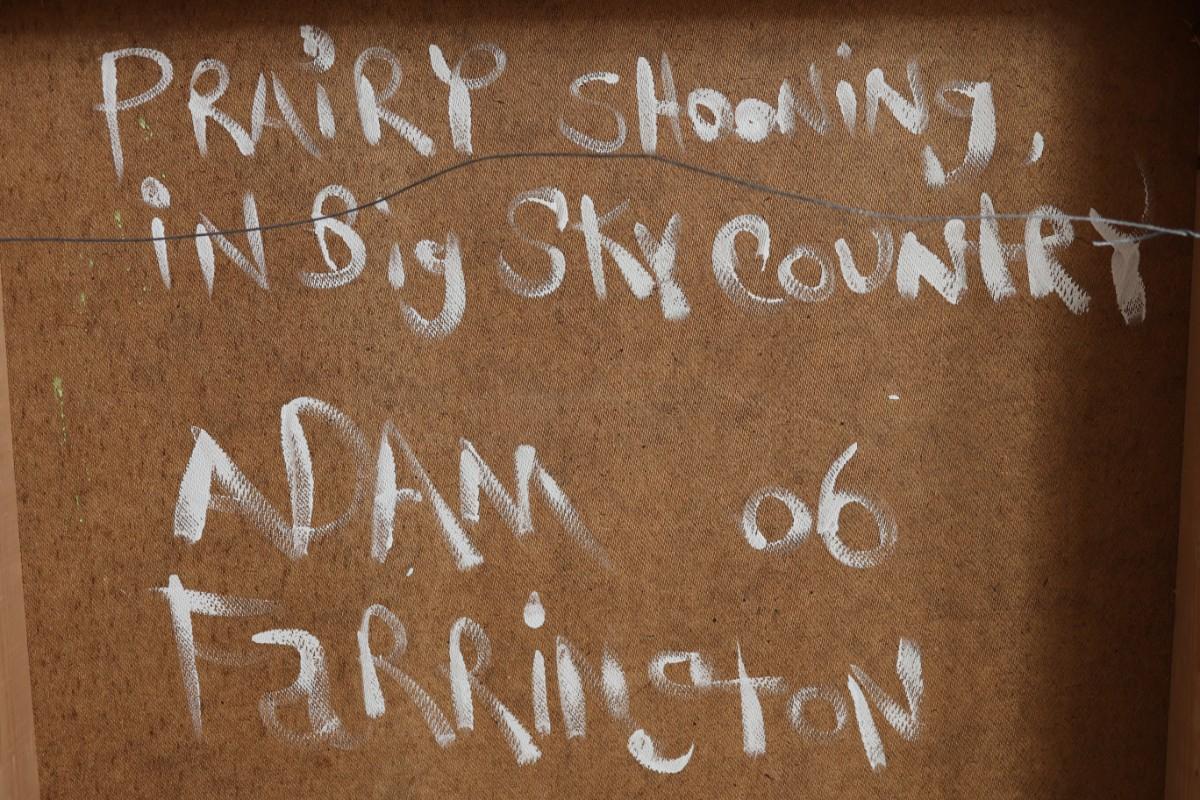 PRAiRY SHOONiNg,
iN Big SKY COUNtRY
ADAM 06
FaRRiNgtoN